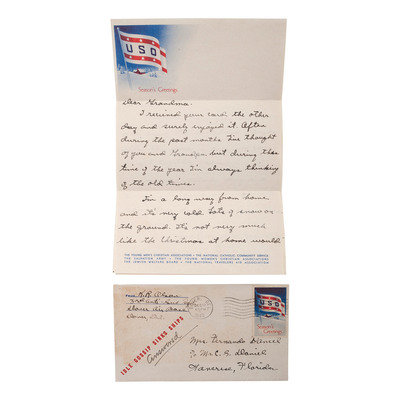 USO
Season's Greetings
Dear Grandma:
I received your card the other
day and surely enjoyed it. Often
during the past months I've thought
of you and Grandpa but during this
time of the year I'm always thinking
of the old times.
I'm a long way from home
and it's very cold. Lots of snow on
the ground. It's not very much
like the Christmas at home would
THE YOUNG MEN'S CHRISTIAN ASSOCIATIONS • THE NATIONAL CATHOLIC COMMUNITY SERVICE
THE SALVATION ARMY • THE YOUNG WOMEN'S CHRISTIAN ASSOCIATIONS
THE JEWISH WELFARE BOARD • THE NATIONAL TRAVELERS AID ASSOCIATION
FROM
Dover, Del.
IDLE GOSSIP SINKS SHIPS
Answered
USO
Season's Greetings
Mrs. Fernando
Mrs. C. A. Daniel
Wanerese, Florida